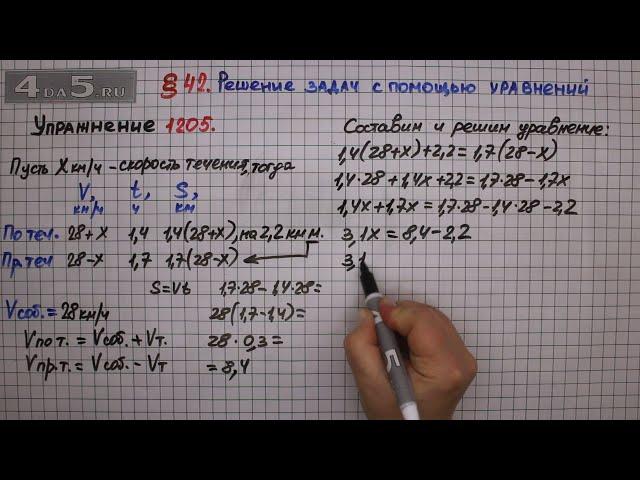 4DA5.RU
§ 42. Решение задач с помощью уравнений
Упражнение 1205.
Пусть X км/ч - скорость течения, тогда
V, км/ч t, ч S, км
По теч. 28+X 1,4 1,4(28+X), на 2,2 км м.
Пр.теч 28-X 1,7 1,7(28-X)
S=Vt
Vсоб. = 28км/ч
Vпо т. = Vсоб. + Vт.
Vпр.т. = Vсоб. - Vт
1,7·28-1,4·28=
28(1,7-1,4)=
28·0,3=
=8,4
Составим и решим уравнение:
1,4(28+X)+2,2=1,7(28-X)
1,4·28+1,4x+2,2=1,7·28-1,7x
1,4x+1,7x=1,7·28-1,4·28-2,2
3,1x=8,4-2,2
3,1